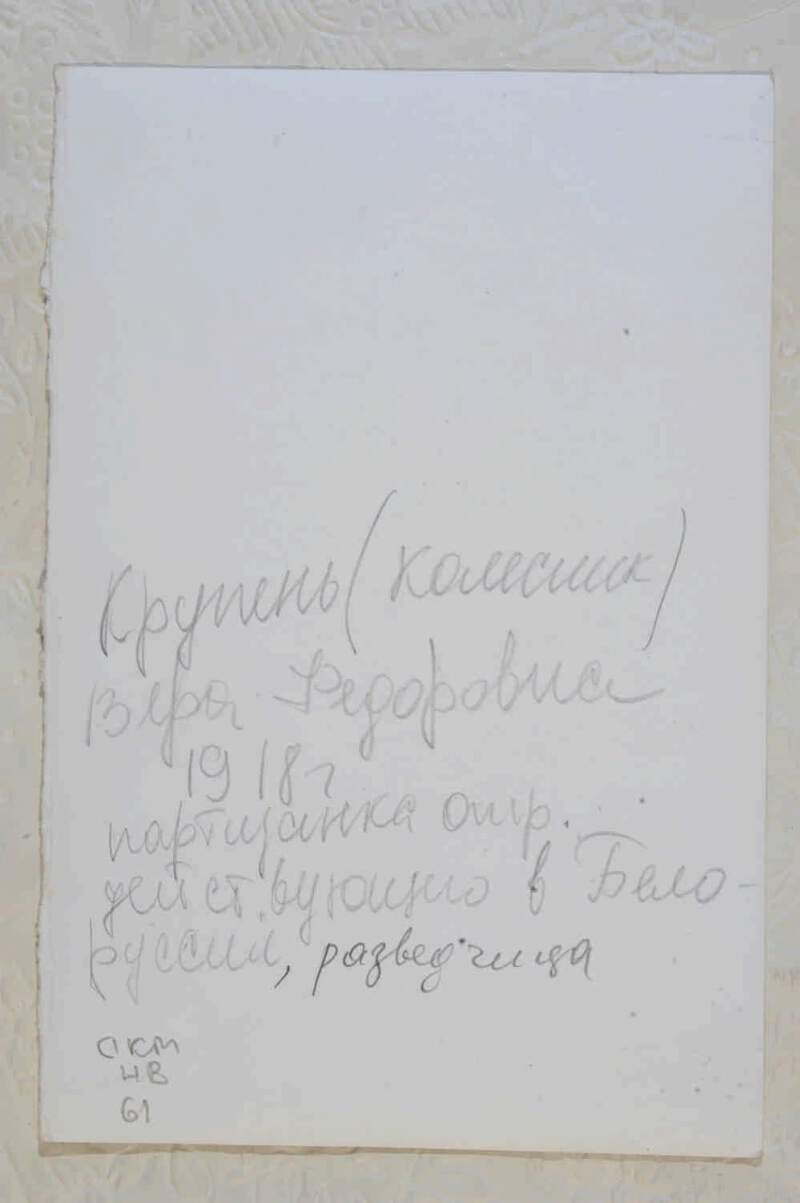 Крупень (Колесник)
Вера Федоровна
1918 г
партизанка отр.
действующго в Бело-
руссии, разведчица
СКМ
НВ
61